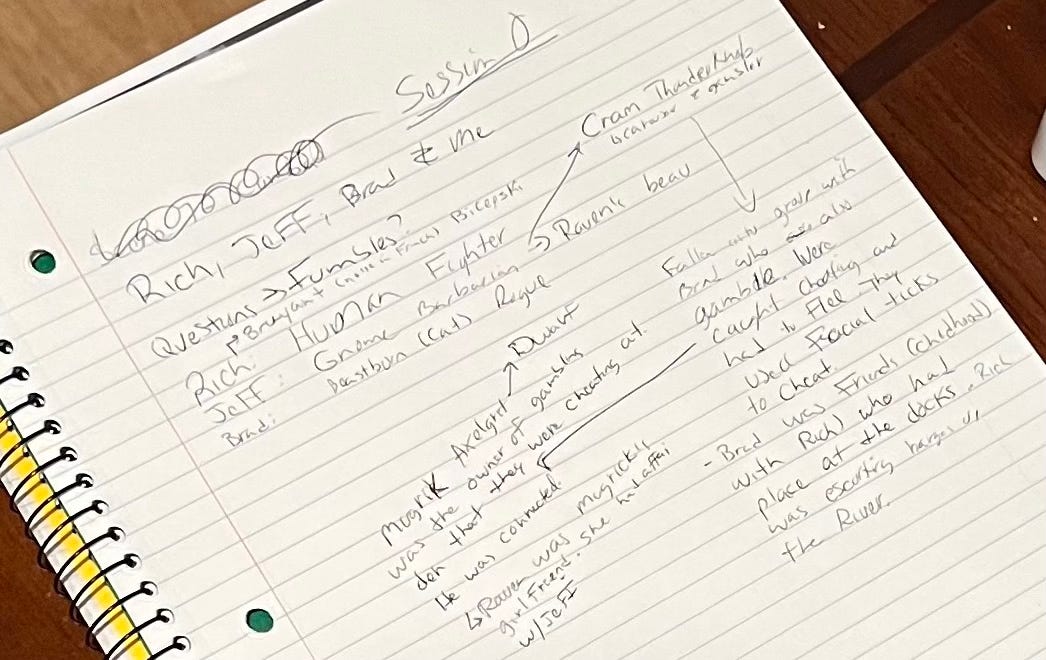 Session 0
Rich, Jeff, Brad & me
Questions → Fumbles?
Bicepski
Rich: Human Fighter
Jeff: Gnome Barbarian
Brad: Beastborn (Cat) Rogue
↳ Raven's beau
Cram ThunderKnob
& gangster
Mugrik Axelgret → Dwarf
was the owner of gambling
den that they were cheating at.
He was connected.
↳ Raven was mugrick's
girlfriend. She had affai
w/Jeff
grow with
Brad who also
gamble. Were
caught cheating and
had to Flee. They
used Facial ticks
to Cheat.
- Brad was Friends (childhood)
with Rich) who had
place at the docks. Rich
was escorting barges
the River.